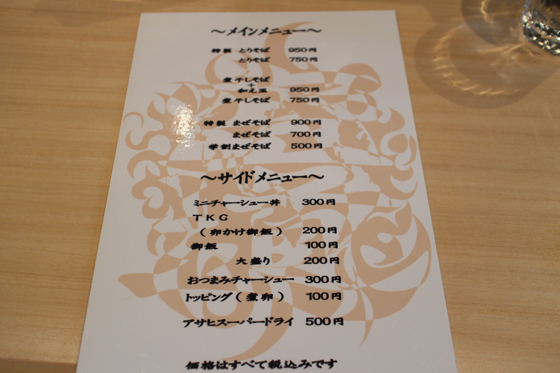 ～メインメニュー～
特製 とりそば 950円
とりそば 750円
煮干しそば
+
和え玉 950円
煮干しそば 750円
特製 まぜそば 900円
まぜそば 700円
学割まぜそば 500円
～サイドメニュー～
ミニチャーシュー丼 300円
TKG
(卵かけ御飯) 200円
御飯 100円
大盛り 200円
おつまみチャーシュー 300円
トッピング(煮卵) 100円
アサヒスーパードライ 500円
価格はすべて税込みです